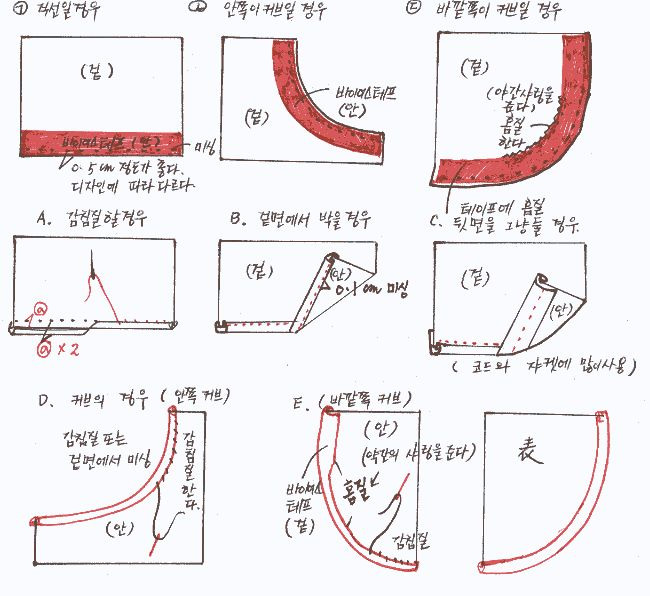 ㉠ 직선일경우
㉡ 안쪽이 커브일 경우
㉢ 바깥쪽이 커브일 경우
(겉)
바이어스테프 (안)
미싱
0.5cm 정도가 좋다.
디자인에 따라 다르다
(겉)
바이어스테프
(안)
(겉)
(약간샤링을
준다)
홈질
한다
테이프에 홈질
A. 감침질할경우
B. 겉면에서 박을 경우
C. 뒷면을 그냥둘 경우.
ⓐ
ⓐ × 2
(겉)
(안)
0.1cm 미싱
(겉)
(안)
( 코드와 쟈켓에 많이사용 )
D. 커브의 경우 ( 안쪽 커브 )
감침질 또는
겉면에서 미싱
감침질한다.
(안)
E. (바깥쪽 커브)
(안)
(약간의 샤링을준다)
홈질
바이어스
테프
(겉)
감침질
表